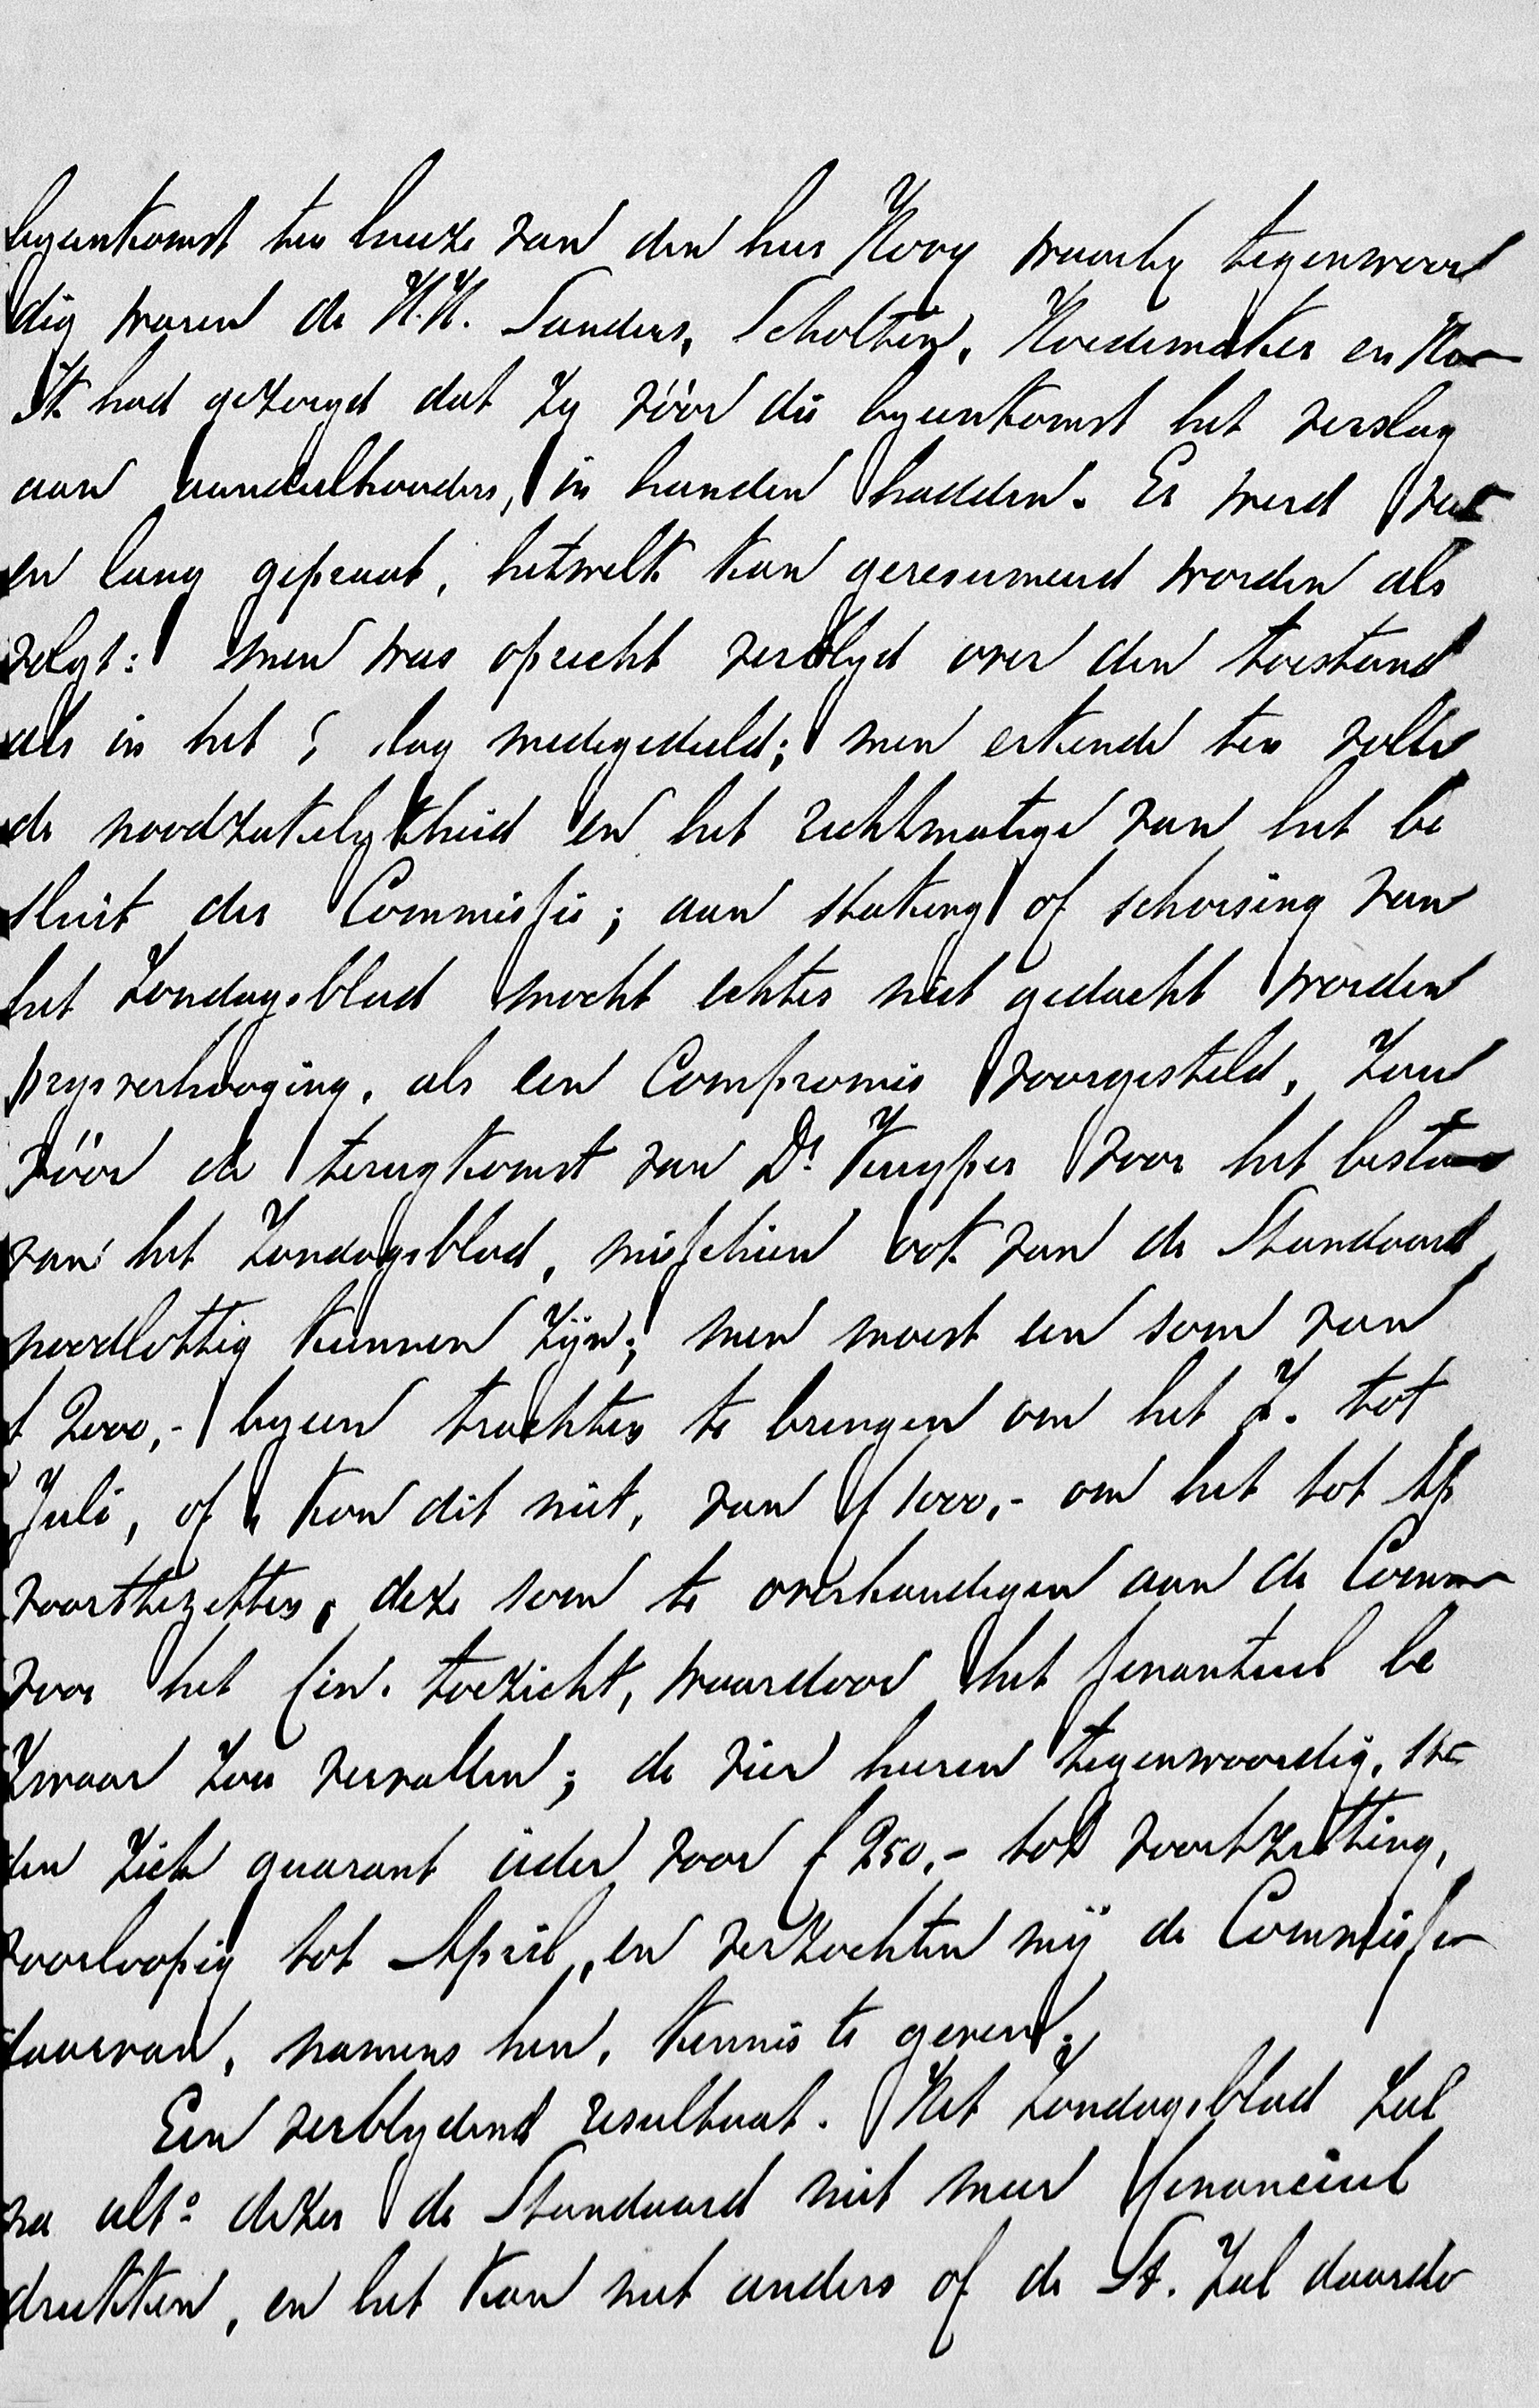 byeenkomst ten huize van den heer Hovy waarby tegenwoor
dig waren de H.H. Sanders, Scholten, Hoedemaker en Ho
Ik had gezorgd dat zy vóór die byeenkomst het verslag
aan aandeelhouders, in handen hadden. Er werd veel
en lang gepraat, hetwelk kan geresumeerd worden als
volgt: men was oprecht verblyd over den toestand
als in het slag medegedeeld; men erkende ten volle
de noodzakelykheid en het rechtmatige van het be
sluit der Commissie; aan staking of schorsing van
het Zondagsblad mocht echter niet gedacht worden
prysverhooging, als een Compromis voorgesteld, zou
vóór de terugkomst van Dr. Kuyper voor het bestaan
van het Zondagsblad, misschien ook van de Standaard
noodlottig kunnen zijn; men moest een som van
f 2000,- byeen trachten te brengen om het Z. tot
Juli, of kon dit niet, van f 1000,- om het tot Ap
voorttezetten, deze som te overhandigen aan de Comm
voor het fin. toezicht, waardoor het finantieel be
zwaar zou vervallen; de vier heeren tegenwoordig, stel
den zich guarant ieder voor f 250,- tot voortzetting,
voorloopig tot April, en verzochten mij de Commissie
daarvan, namens hen, kennis te geven.
Een verblydend resultaat. Het Zondagsblad zal
na ulto dezer de Standaard niet meer financieel
drukken, en het kan niet anders of de St. zal daardo